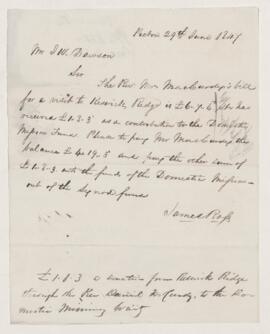 Pictou 29th June 1847
Mr J. W. Dawson
Sir
The Rev. Mr MacCurdy's bill
for a visit to Keswick Ridge is £6.7.6. He has
received £1.8.3 as a contribution to the Domestic
Mission Fund. Please to pay Mr MacCurdy the
balance £4.19.3 and pay the other sum of
£1.8.3 into the funds of the Domestic Mission
out of the Synod fund
James Ross
£1.8.3 a donation from Keswick Ridge
through the Rev Daniel McCurdy, to the Do-
mestic Missionary Society